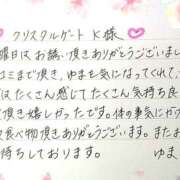 クリスタルゲート K様
曜日はお誘い頂きありがとうございまし
コミまで頂き、ゆまを気になってくれて、
はたくさん感じてたくさん気持ち良
て頂き嬉しかったです。体の事気にかけ
食べ物頂きありがとうございます。またお
待ちしております。 ゆま